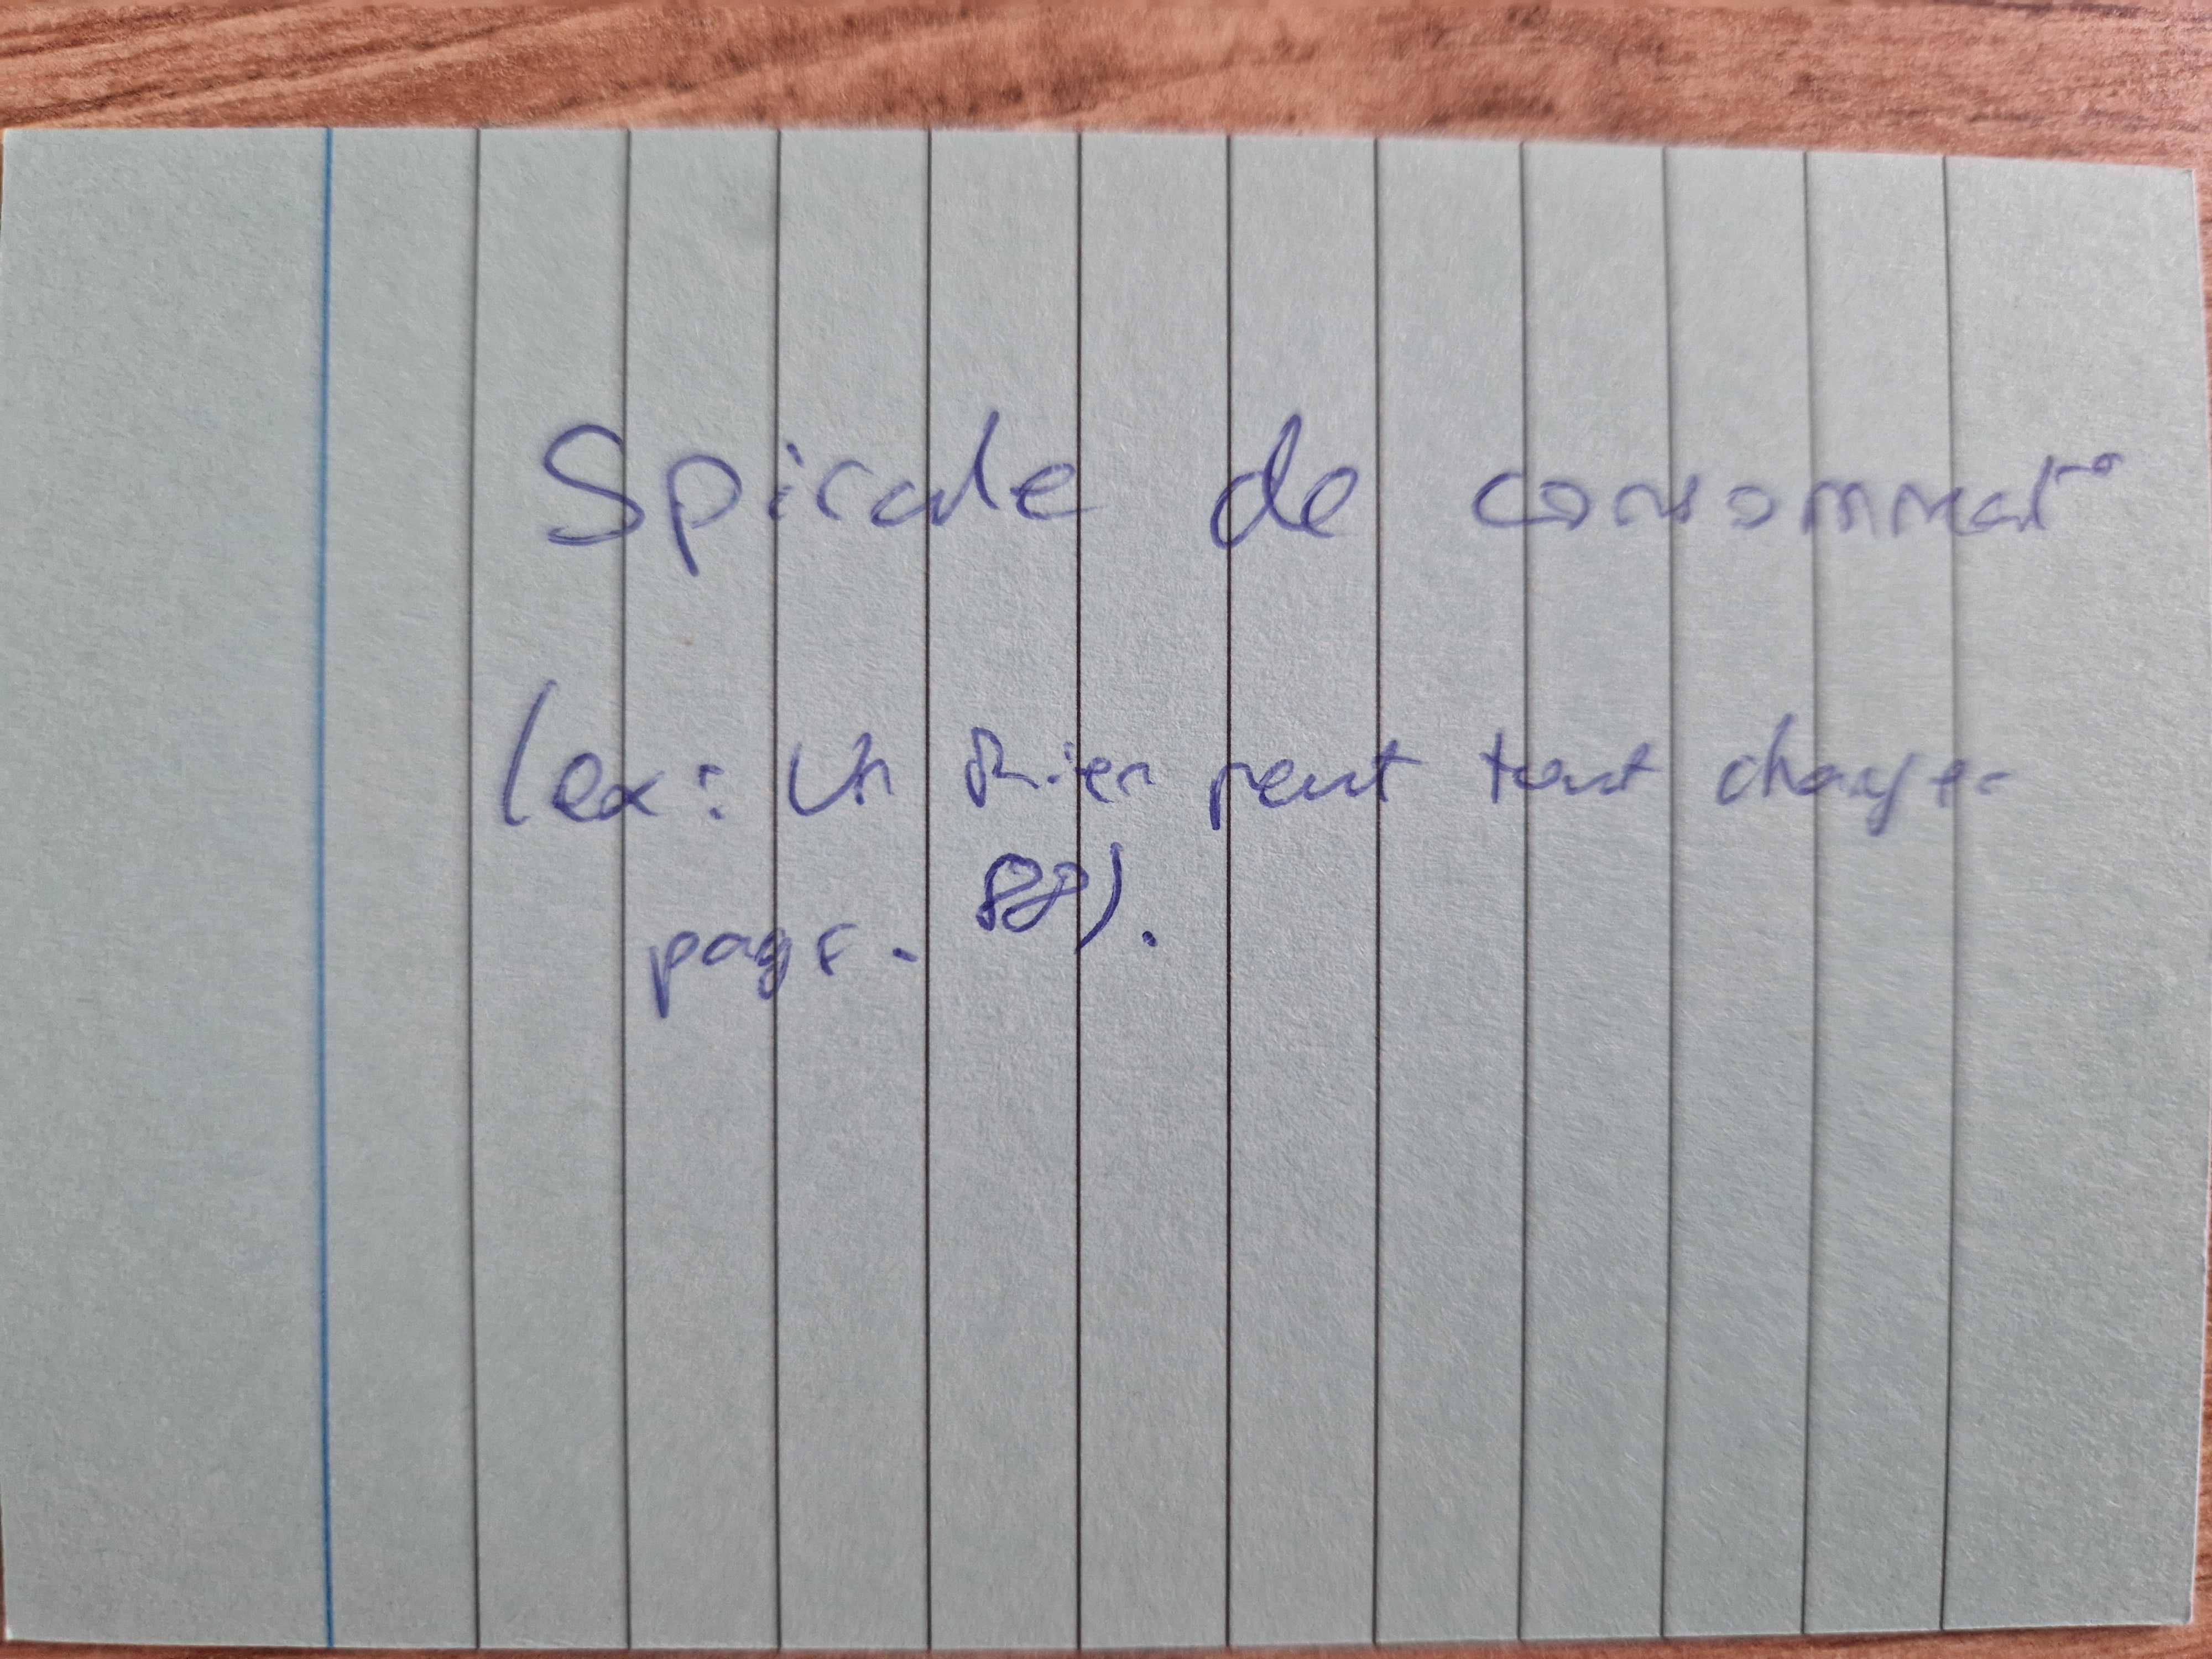 Spirale de consommat°
(ex: Un Rien peut tout changer
page. 88).